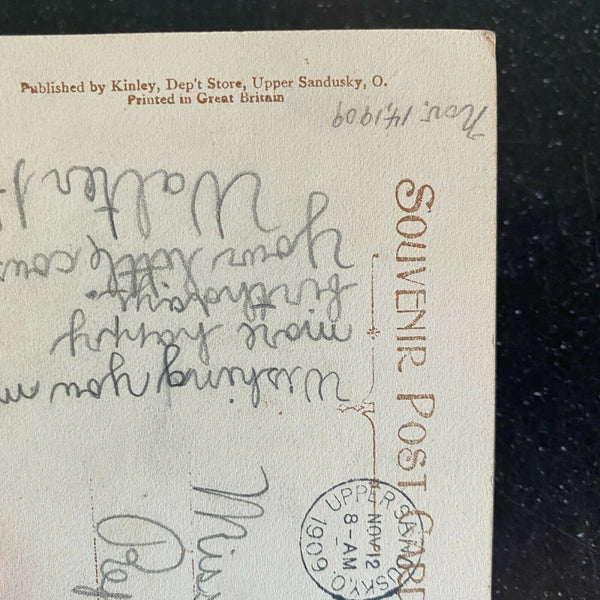 Published by Kinley, Dep't Store, Upper Sandusky, O.
Printed in Great Britain
Nov. 14, 1909
SOUVENIR POST CARD
Wishing you
more happy
birthdays.
Your little
Walter
UPPER SANDUSKY, O.
NOV 12
8-AM
1909
Miss